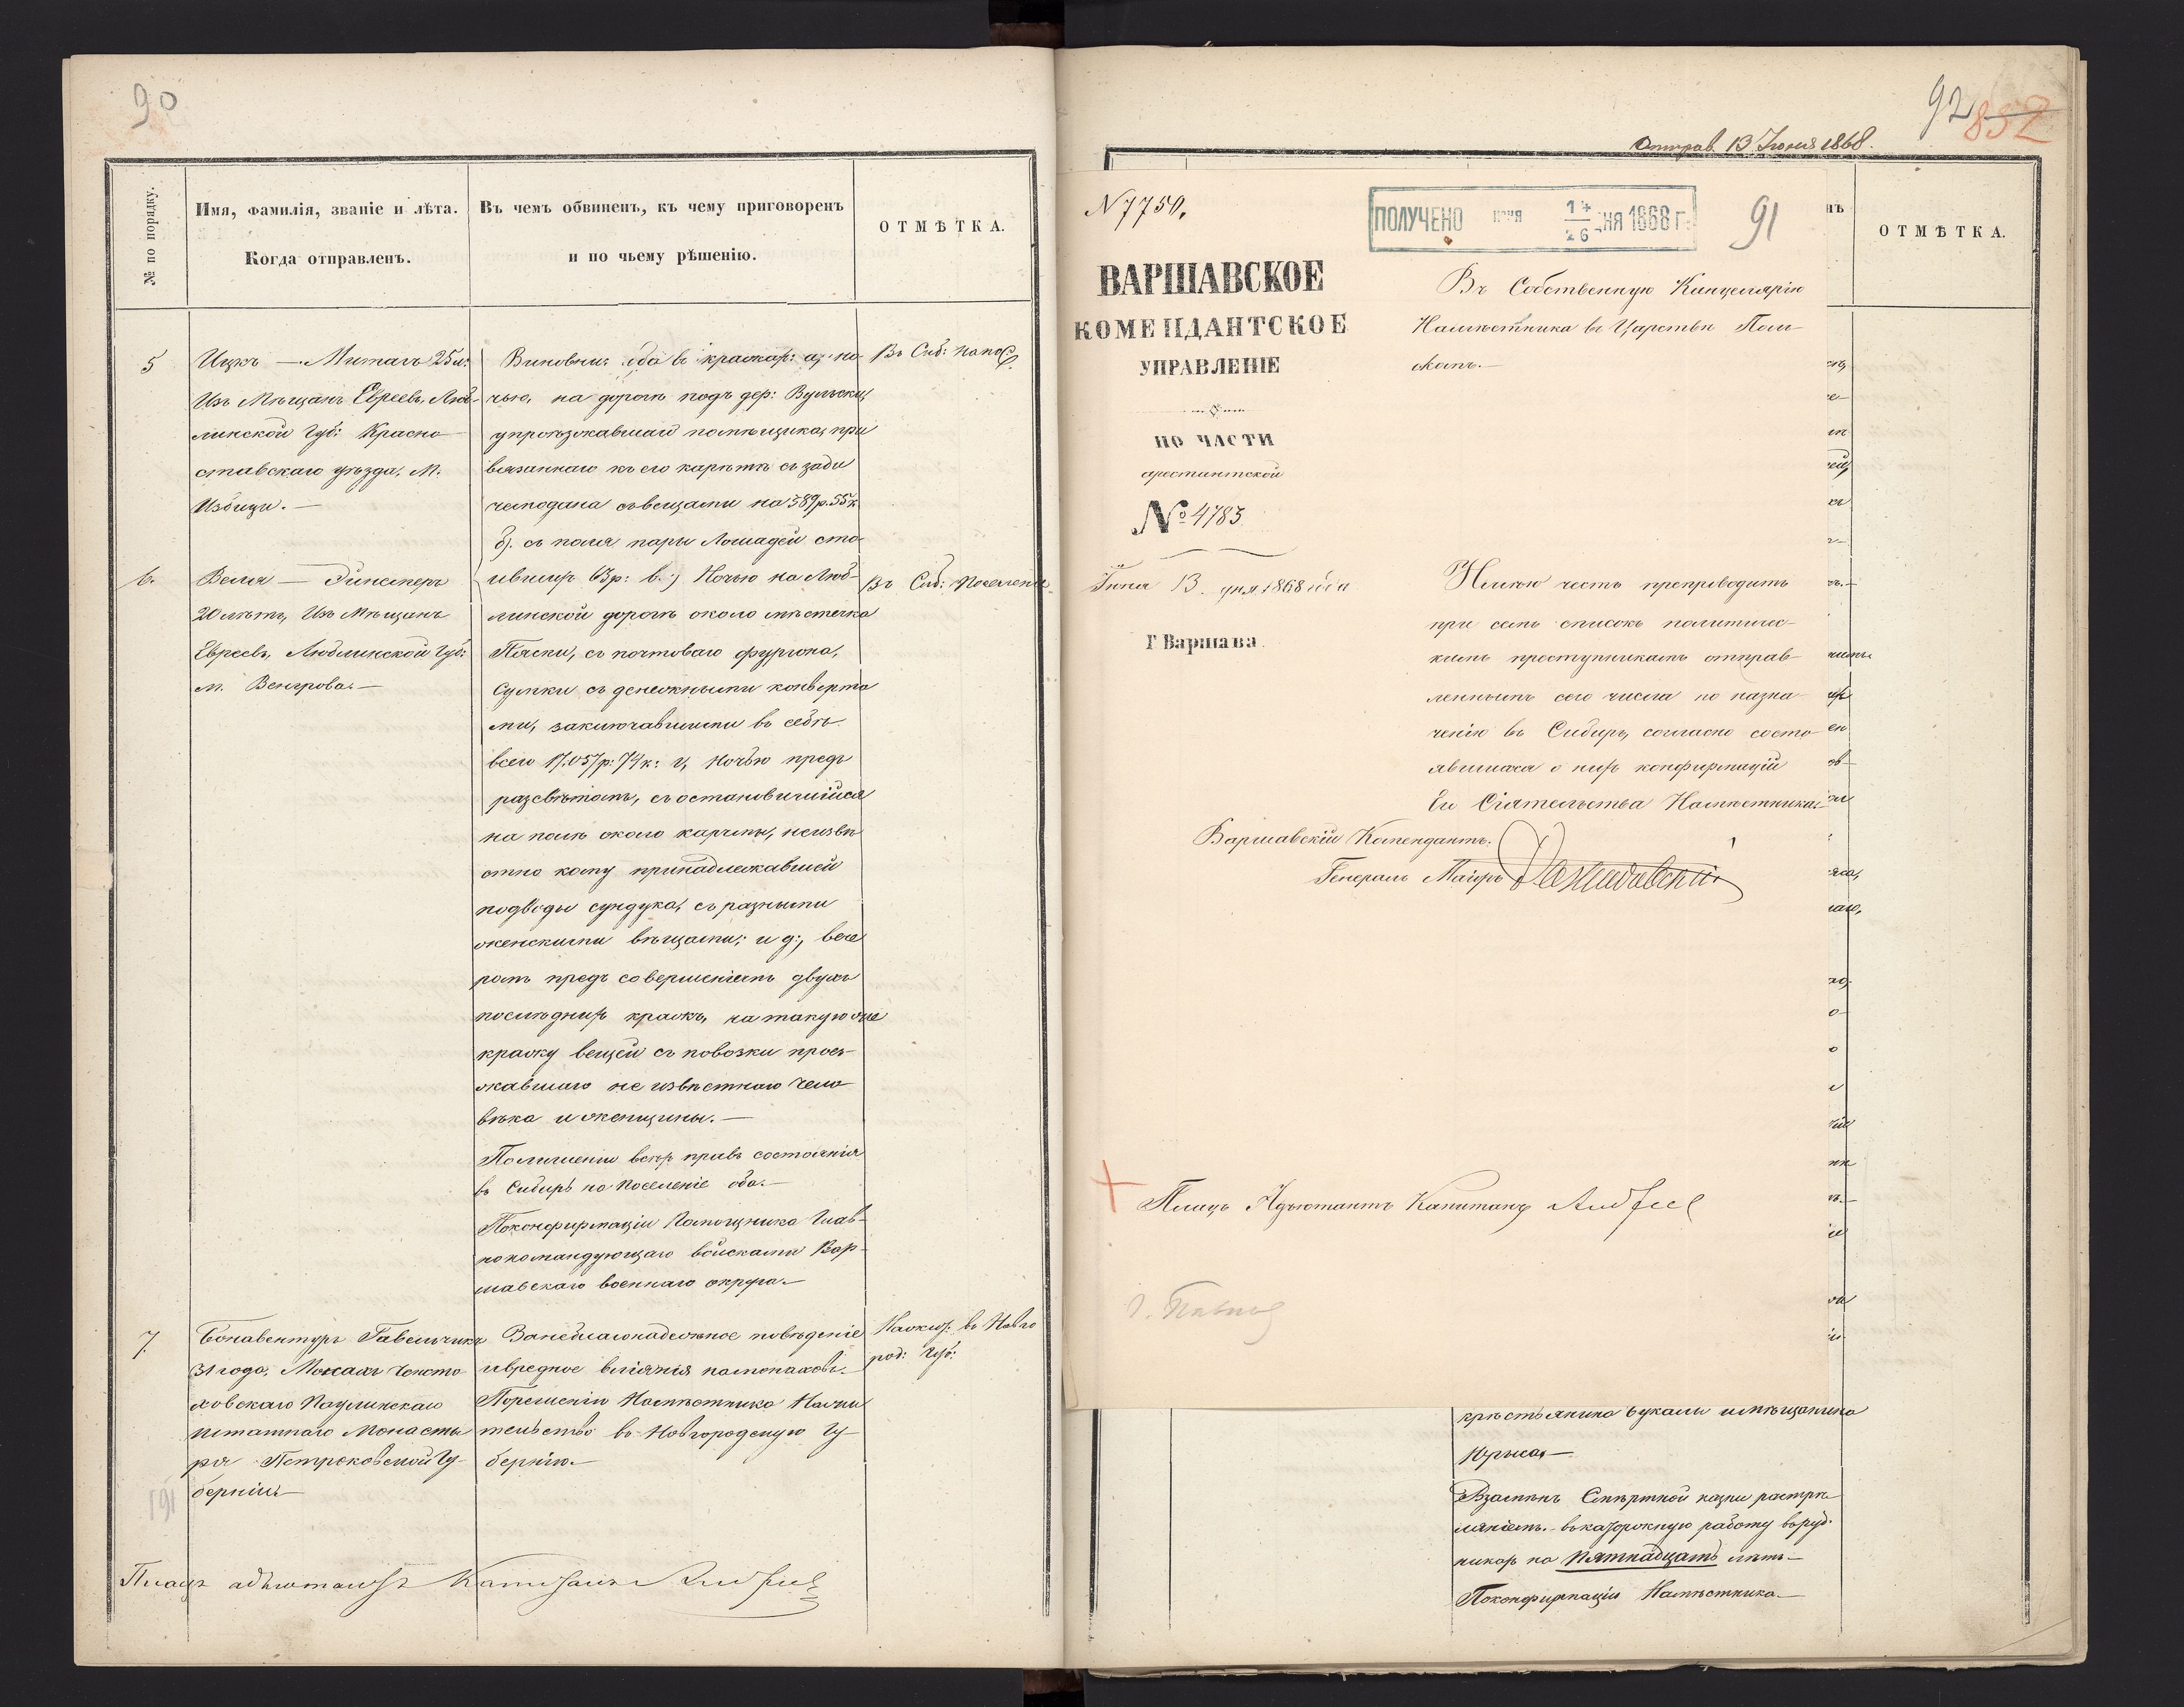 90
№ по порядку.
Имя, фамилія, званіе и лѣта.
Когда отправленъ.
Въ чемъ обвиненъ, къ чему приговоренъ
и по чьему рѣшенію.
ОТМѢТКА.
5
Ицекъ — Митагъ 25 л:
Изъ Мѣщанъ Евреевъ, Люб-
линской Губ: Красно-
ставскаго уѣзда, М.
Избицы. —
6.
Веля —
20 лѣтъ, Изъ Мѣщанъ
Евреевъ, Люблинской Губ:
м. Венгрова. —
Виновны: оба въ кражахъ: а) но-
чью, на дорогѣ подъ дер: Вульскиц
у проѣзжавшаго помѣщика, при
вязаннаго къ его каретѣ съ зади
чемодана съ вещами на 389 р. 55 к.
б). съ поля пары Лошадей сто-
ившихъ 63 р: в.) Ночью на Люб-
линской дорогѣ около мѣстечка
Пяски, съ почтоваго фургона,
Сумки съ денежными конверта
ми, заключавшими въ себѣ
всего 17.057 р: 74 к: г, Ночью предъ
разсвѣтомъ, съ остановившійся
на полѣ около карчмы, неизвѣ
стно кому принадлежавшей
подводы сундука, съ разными
женскими вѣщами; и д:, вече
ромъ предъ совершеніемъ двухъ
послѣднихъ кражъ, на такую же
кражу вещей съ повозки проѣз-
жавшаго не извѣстнаго чело
вѣка и женщины. —
По лишеніи всѣхъ правъ состоянія
въ Сибирь на Поселеніе оба. —
По конфирмаціи Помощника Глав-
нокомандующаго войсками Вар-
шавскаго военнаго округа. —
Въ Сиб: на пос.
Въ Сиб: Поселеніе
7.
Бонавентуръ Гавельчикъ
31 года, Монахъ Ченсто
ховскаго Паулинскаго
штатнаго Монасты
ря Петроковской Гу
берніи. —
За неблагонадежное поведеніе
и вредное вліяніе на монаховъ. —
По решенію Намѣстника На жи
тельство въ Новгородскую Гу
бернію. —
На жит. въ Новго
род: Губ:
191
Плацъ адъютантъ Капитанъ
92 852
Отправ. 13 Іюня 1868.
N 7750.
ПОЛУЧЕНО 14/26 дня 1868 г.
91
ВАРШАВСКОЕ
КОМЕНДАНТСКОЕ
УПРАВЛЕНІЕ
ПО ЧАСТИ
арестантской
№ 4783
Іюня 13. дня 1868 года
Г Варшава.
Въ Собственную Канцелярію
Намѣстника въ Царствѣ Поль-
скомъ. —
Имѣю честь препроводить
при семъ списокъ политичес-
кимъ преступникамъ отправ
леннымъ сего числа по назна
ченію въ Сибирь, согласно состо
явшихся о нихъ конфирмацій
Его Сіятельства Намѣстника
Варшавскій Комендантъ:
Генералъ Маіоръ
Плацъ Адъютантъ Капитанъ
ОТМѢТКА.
крѣстьянина Букалы и мѣщанина
Юрыса. —
Взамѣнъ Смѣртной казни растрѣ
ляніемъ. — въ каторжную работу въ руд-
никахъ на Пятнадцать лѣтъ —
По конфирмаціи Намѣстника. —